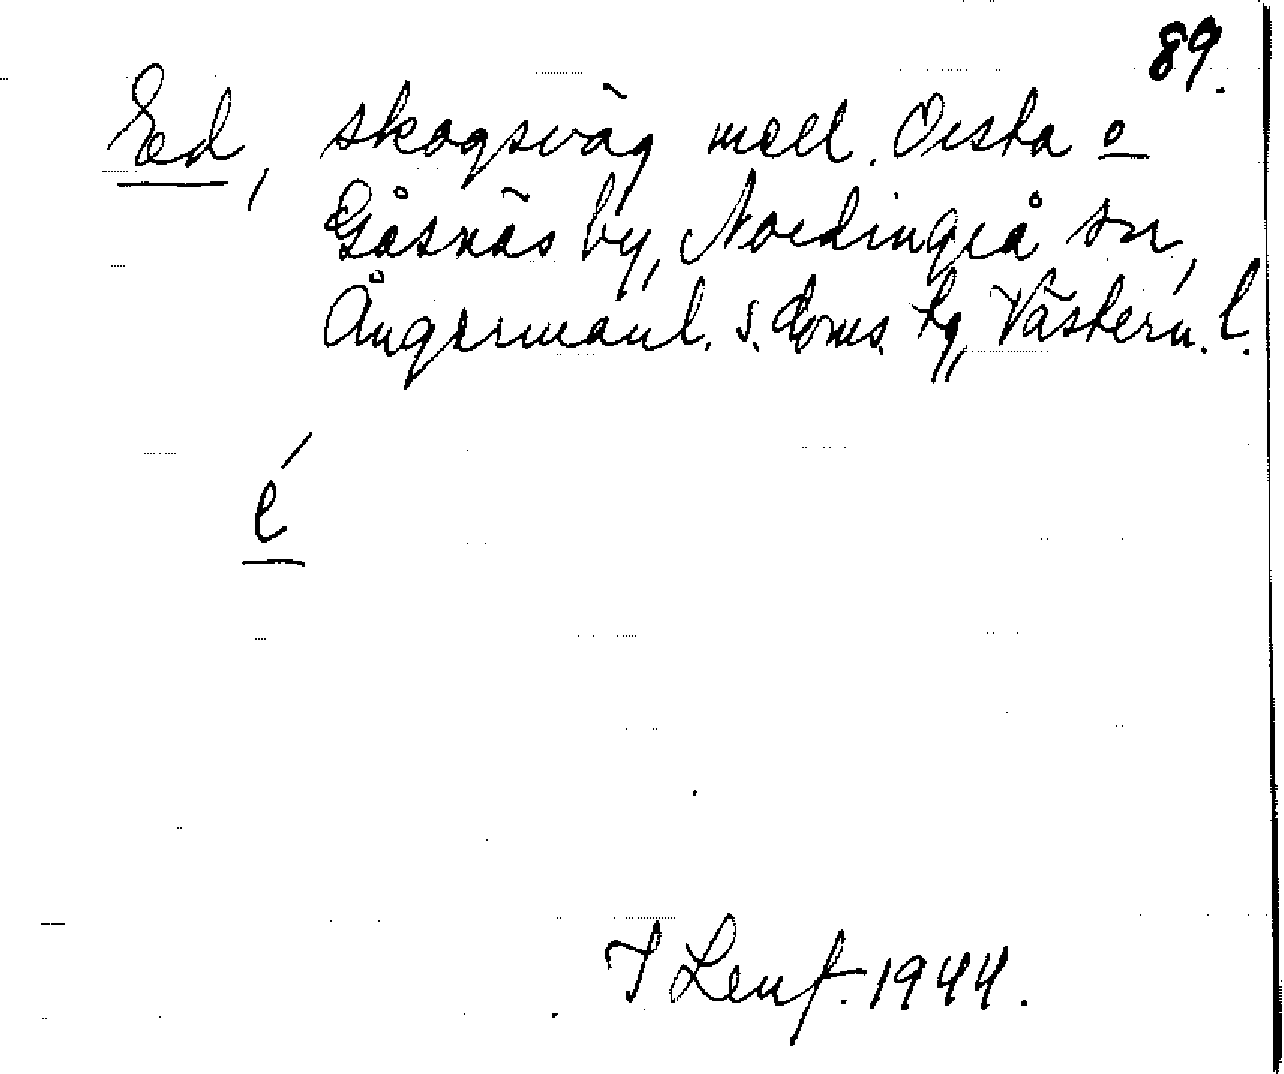 89.
Ed, skogsväg mell. Orsta o
Gåsnäs by, Nordingrå sn,
Ångermanl. s. doms. tg, Västern. l.
é
I Lenf. 1944.